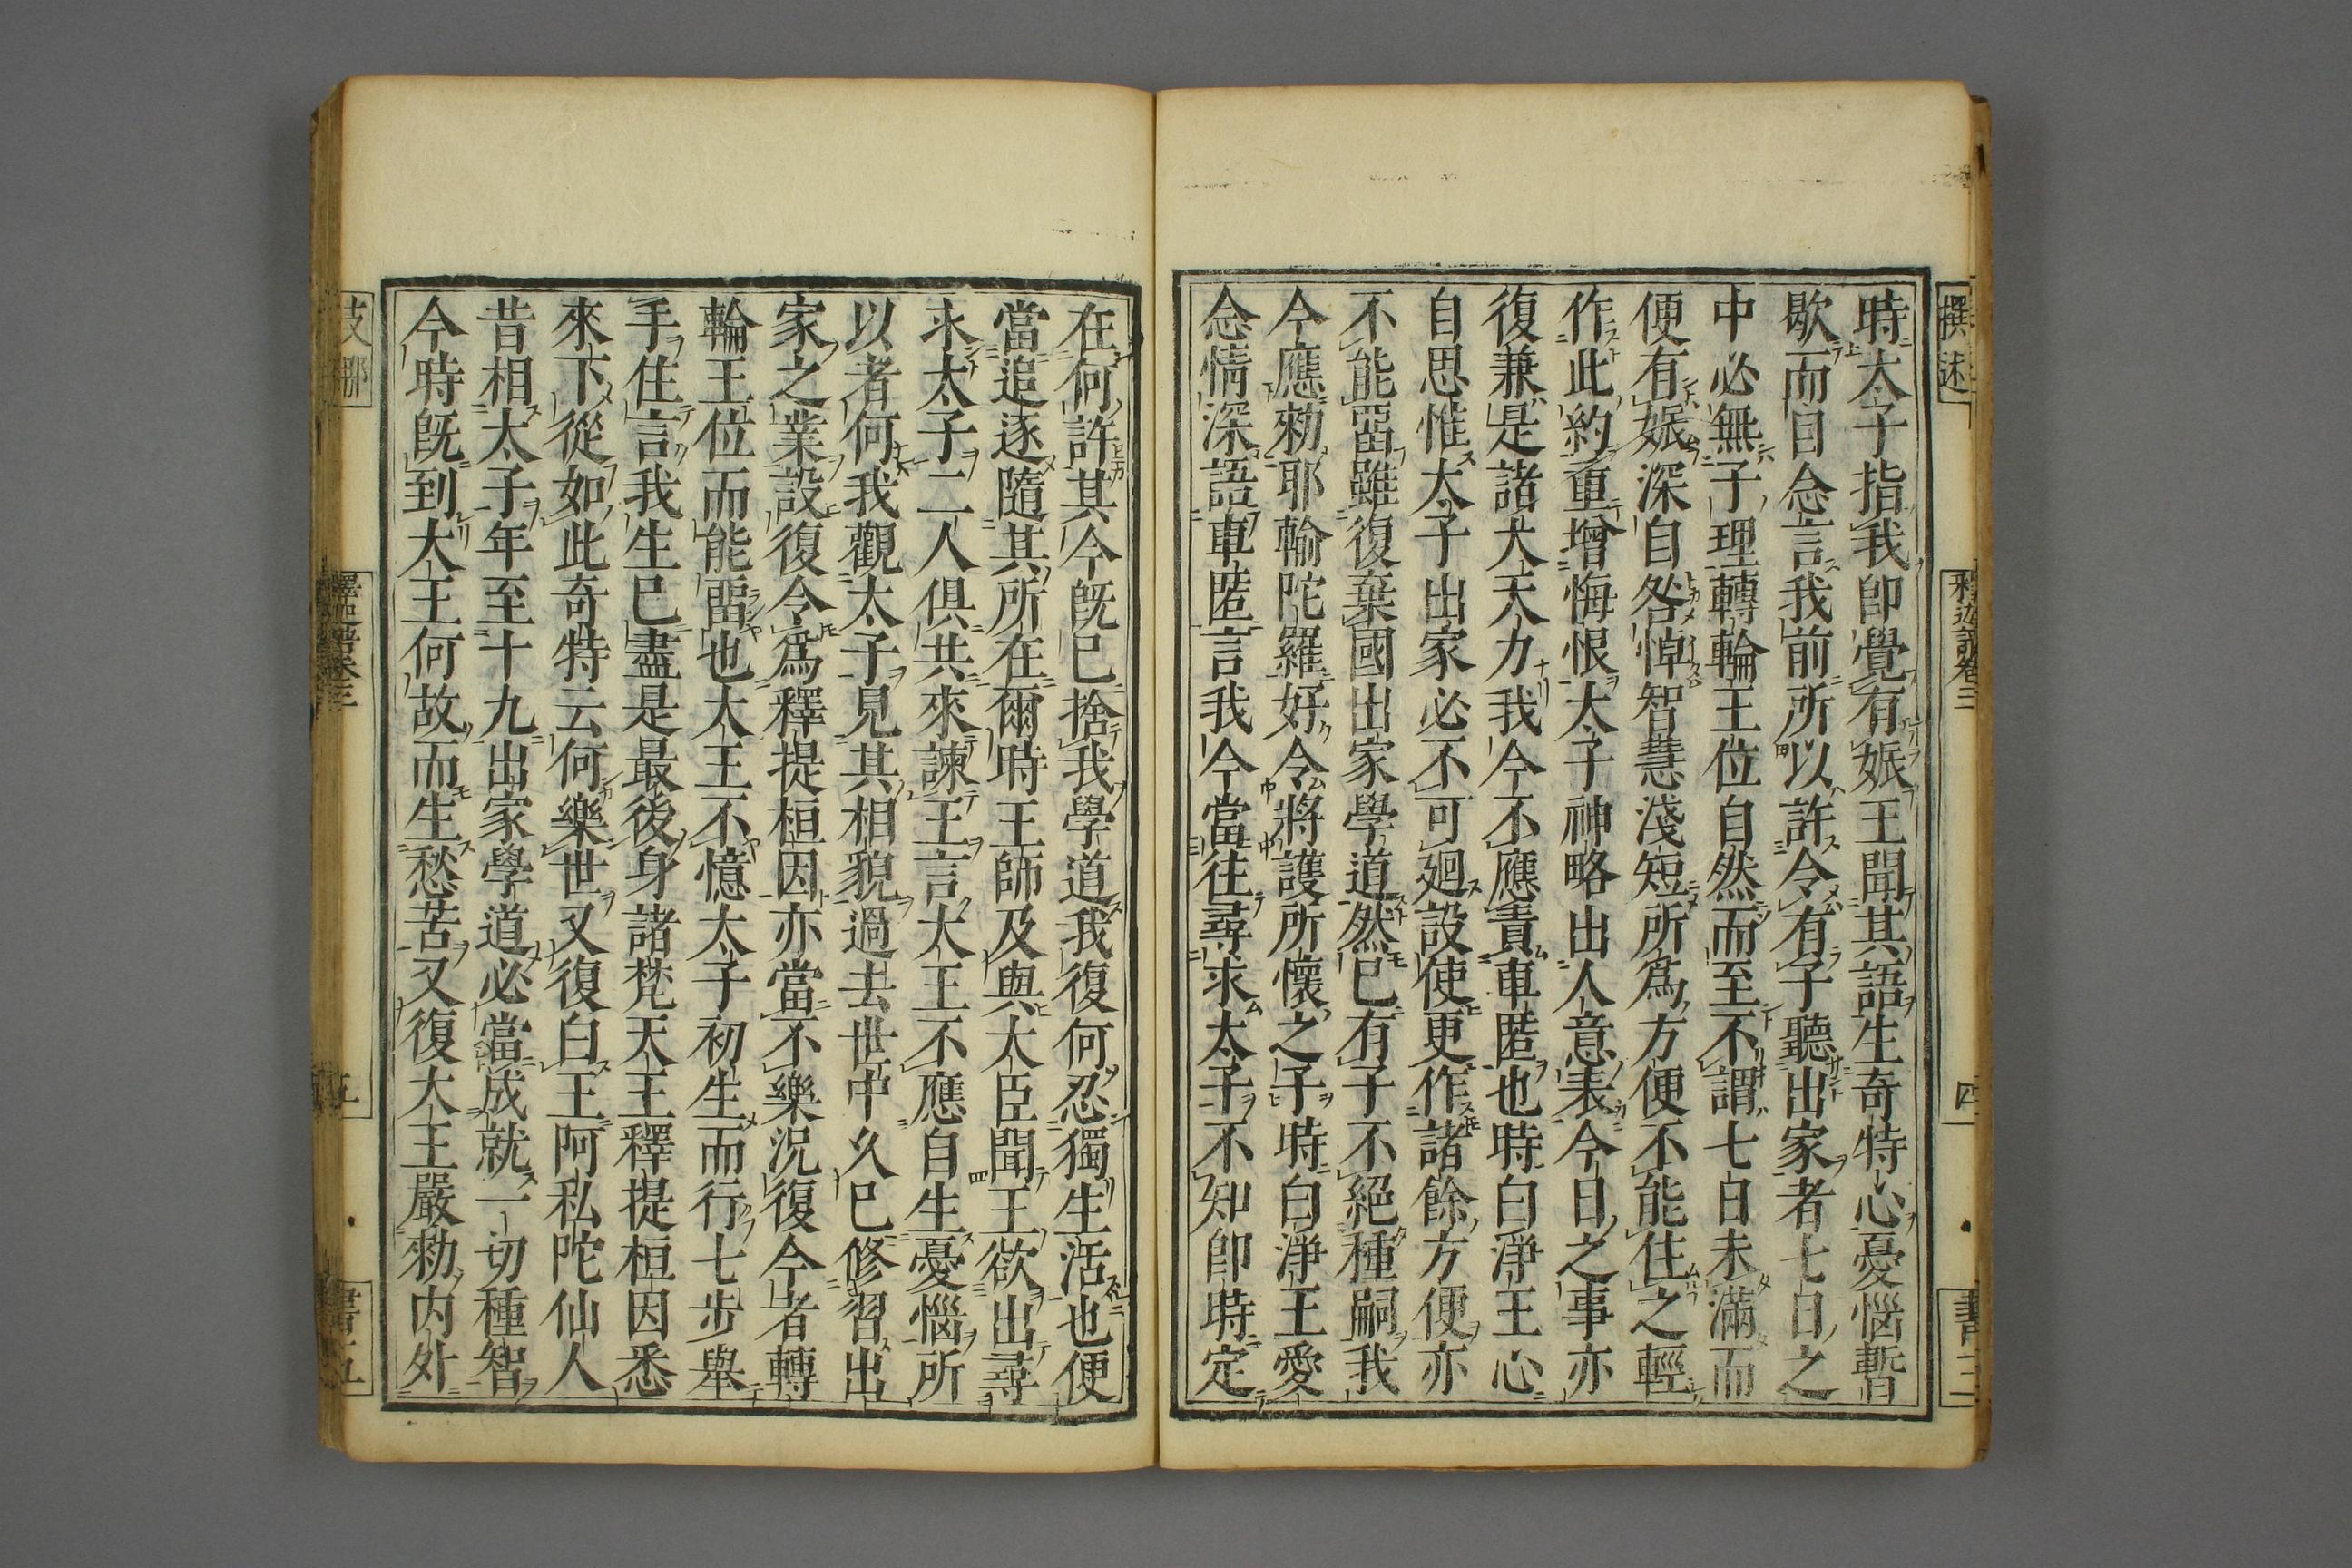 撰述
釋迦譜卷三
四
書三
時太子指我即覺有娠王聞其語生奇特心憂惱暫
歇而自念言我前所以許令有子聽出家者七日之
中必無子理轉輪王位自然而至不謂七日未滿而
便有娠深自咎悼智慧淺短所爲方便不能住之輕
作此約重增悔恨太子神略出人意表今日之事亦
復兼是諸大天力我今不應責車匿也時白淨王心
自思惟太子出家必不可廻設使更作諸餘方便亦
不能畱雖復棄國出家學道然已有子不絕種嗣我
今應勑耶輸陀羅好令將護所懷之子時白淨王愛
念情深語車匿言我今當往尋求太子不知即時定
在何許其今旣已捨我學道我復何忍獨生活也便
當追逐隨其所在爾時王師及與大臣聞王欲出尋
求太子二人俱共來諫王言大王不應自生憂惱所
以者何我觀太子見其相貌過去世中久已修習出
家之業設復令爲釋提桓因亦當不樂況復今者轉
輪王位而能畱也大王不憶太子初生而行七步舉
手住言我生已盡是最後身諸梵天王釋提桓因悉
來下從如此奇特云何樂世又復白王阿私陀仙人
昔相太子年至十九出家學道必當成就一切種智
今時旣到大王何故而生愁苦又復大王嚴勑内外
支那
釋迦譜卷三
五
書五